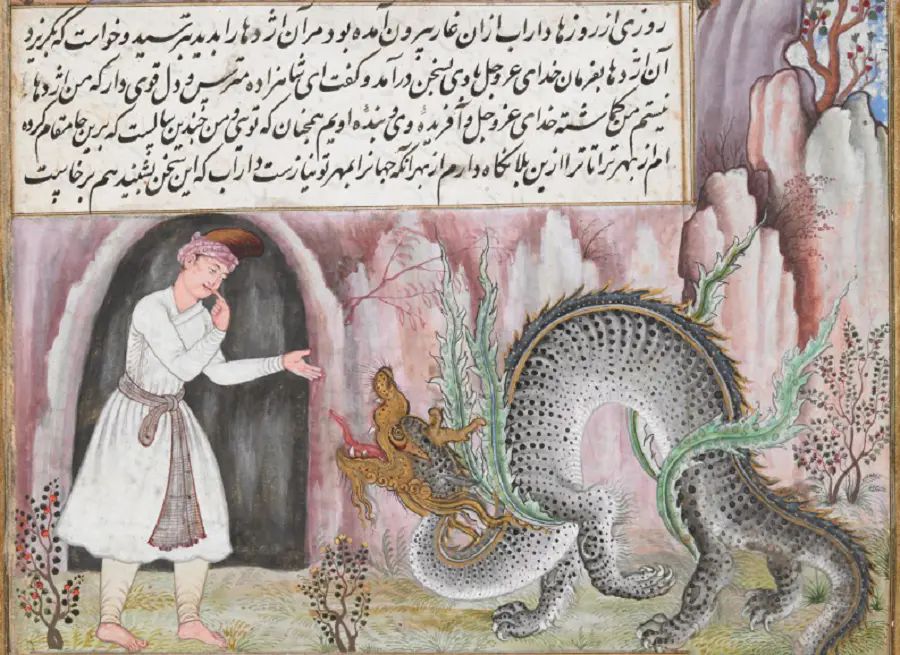 روزی از روزها داراب ازان غار بیرون آمده بود مر آن اژدها را بدید بترسید و خواست که بگریزد
آن اژدها بفرمان خدای عز و جل با وی بسخن درآمد و گفت ای شاهزاده مترس و دل قوی دار که من اژدها
نیستم من گماشته خدای عز و جل و آفریدهٔ وی و بندهٔ اویم همچنان که تویی و من چندین سالیست که برین جا مقام کرده
ام از بهر ترا تا ترا ازین بلا نگاه دارم از بهر آنکه جهانرا بمهر تو نیازست داراب که این سخن بشنید هم بر خاست